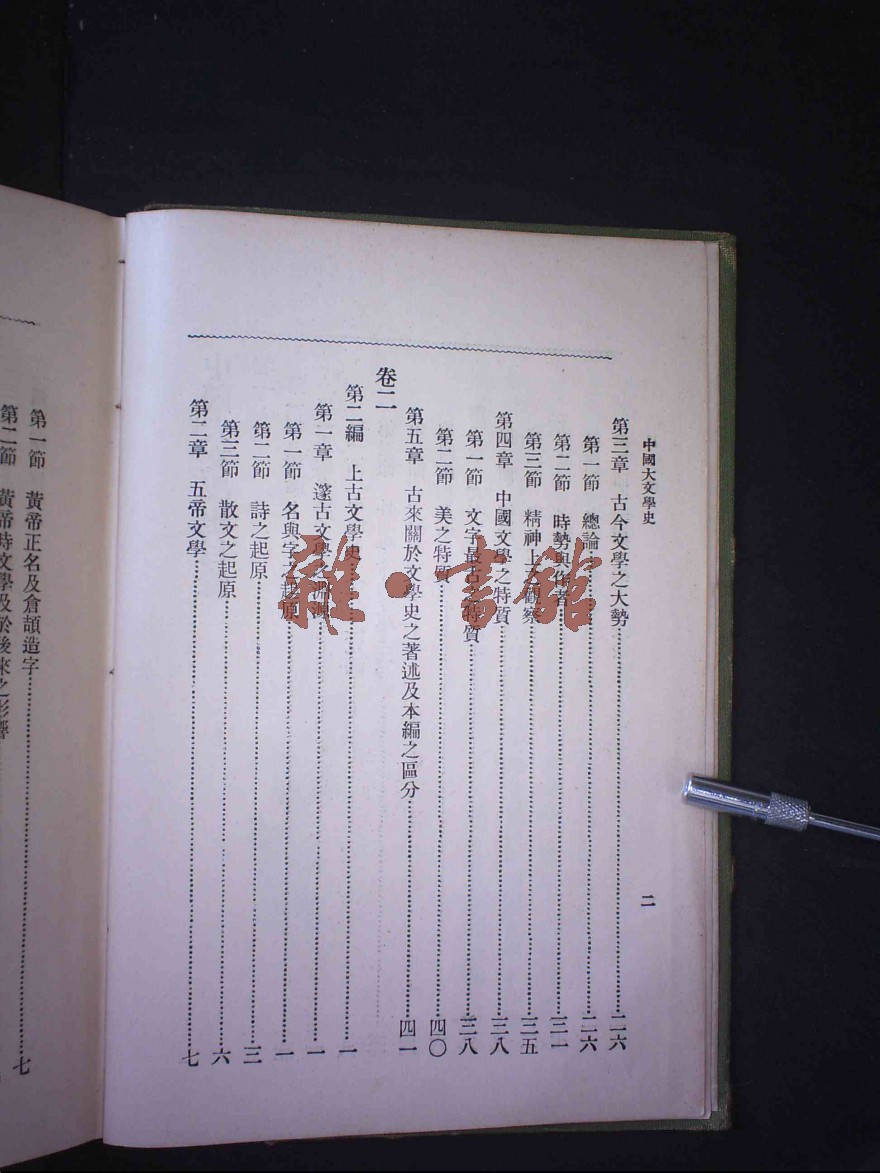 中國大文學史
二
第三章 古今文學之大勢 二六
第一節 總論 二六
第二節 時勢與作者 三一
第三節 精神上之觀察 三五
第四章 中國文學之特質 三八
第一節 文字最古之特質 三八
第二節 美之特質 四〇
第五章 古來關於文學史之著述及本編之區分 四一
卷二
第二編 上古文學史 一
第一章 邃古文學之淵源 一
第一節 名與字之起原 一
第二節 詩之起原 三
第三節 散文之起原 六
第二章 五帝文學 七
第一節 黃帝正名及倉頡造字 七
第二節 黃帝時文學及於後來之影響
雜·書館